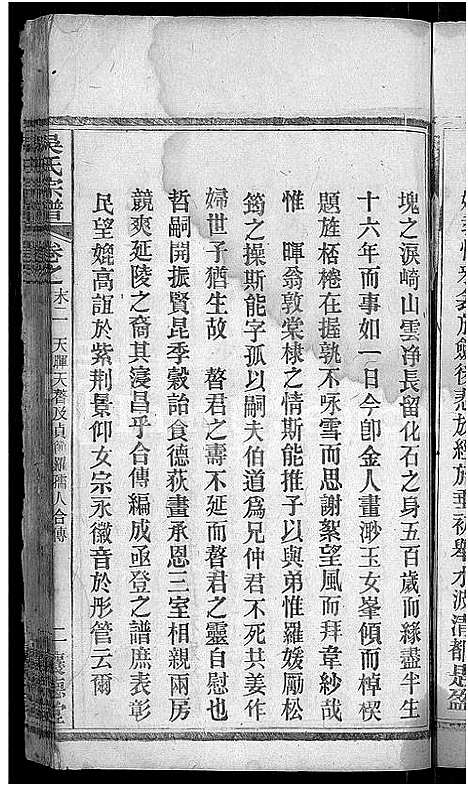 塊之淚崎山雲净長留化石之身五百歲而緣盡半生
十六年而事如一日今卽金人畫渺玉女峯傾而棹楔
題旌栝棬在握孰不咏雪而思謝絮望風而拜韋紗哉
惟　暉翁敦棠棣之情斯能推子以與弟惟羅媛勵松
筠之操斯能字孤以嗣夫伯道爲兄仲君不死共姜作
婦世子猶生故　瞀君之壽不延而瞀君之靈自慰也
哲嗣開振賢昆季穀詒食德荻畫承恩三室相親兩房
競爽延陵之裔其寖昌乎合傳編成亟登之譜庶表彰
民望媲高誼於紫荆景仰女宗永徽音於彤管云爾
吳氏宗譜
卷之末二
天暉天瞀及貞節羅孺人合傳